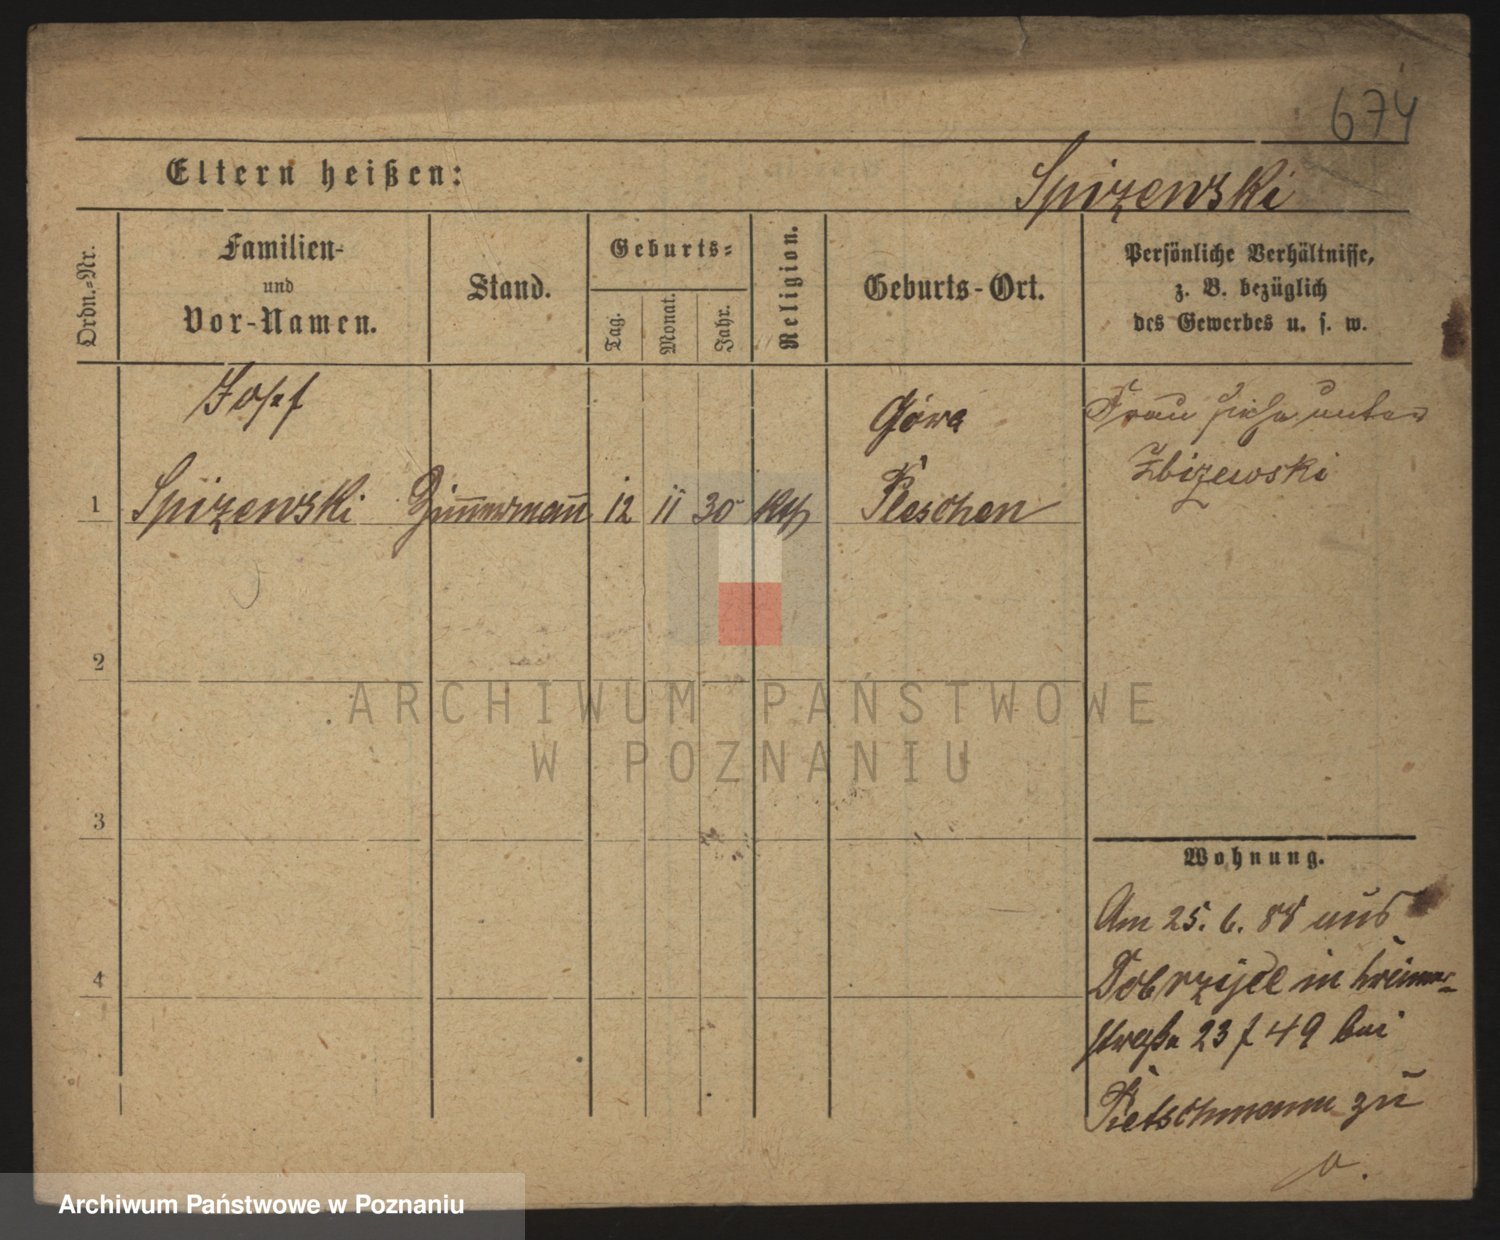 674
Eltern heißen:
Spizewski
Ordn.-Nr.
Familien-
und
Vor-Namen.
Stand.
Geburts-
Tag.
Monat.
Jahr.
Religion.
Geburts-Ort.
Persönliche Verhältnisse,
z. B. bezüglich
des Gewerbes u. s. w.
Josef
Góra
Frau siehe unter
Zbizewski
1 Spizewski Zimmermann 12 11 30 kth Pleschen
2
3
4
ARCHIWUM PAŃSTWOWE
W POZNANIU
Wohnung.
Am 25. 6. 88 aus
in
straße 23 f 49 bei
Pietschmann zu
Archiwum Państwowe w Poznaniu